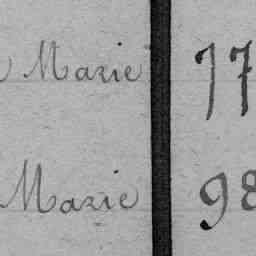 Marie 77
Marie 98